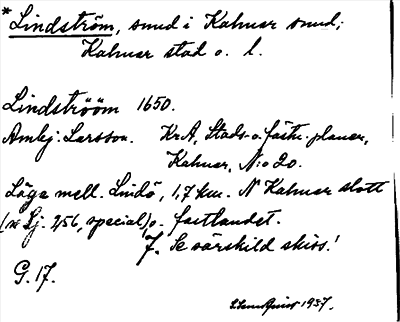 *Lindström, sund i Kalmar sund;
Kalmar stad o. l.
Lindströöm 1650.
Ambj. Larsson. KrA, Stads- o. fästn. planer,
Kalmar, N:o 20.
Läge mell. Lindö, 1,7 km. N Kalmar slott
(se Lj. 256, special), o. fastlandet.
Se särskild skiss!
G. 17.
1937.